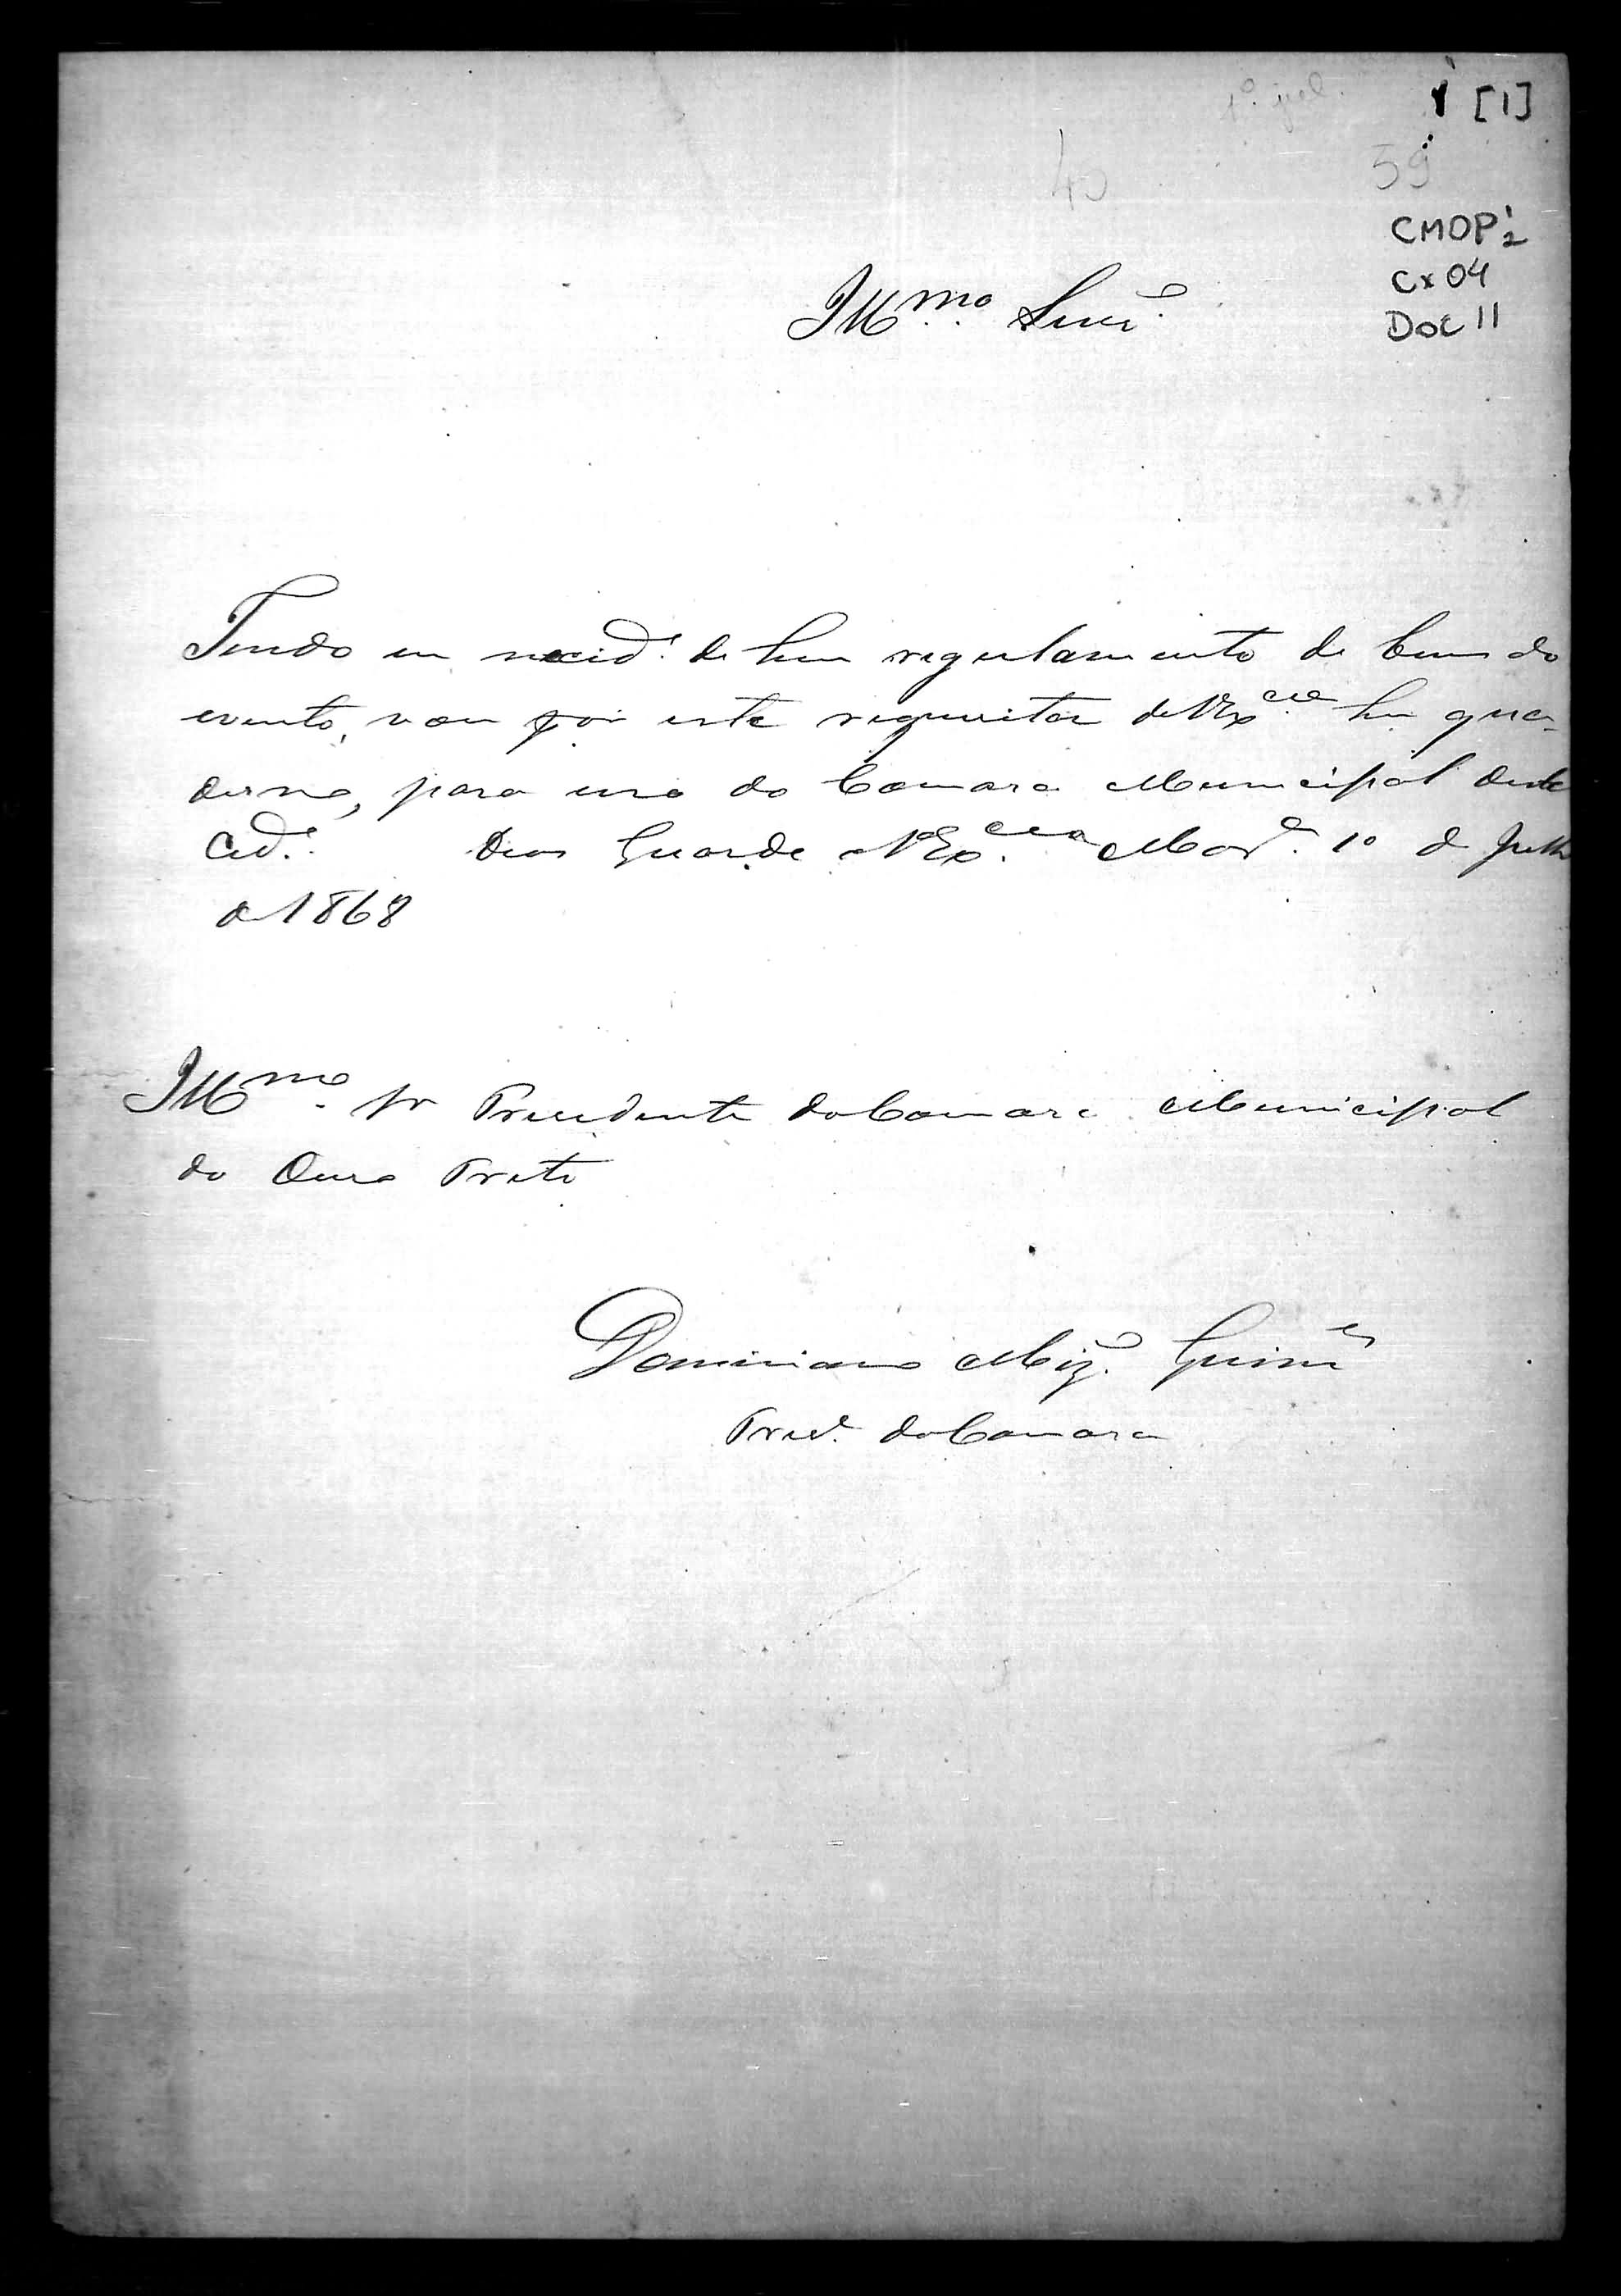 1º jul.
[1]
40
59
CMOP 1/2
Cx 04
DOC 11
Illmo. Senr.
Tendo eu necid.e de hum regulamento de bens do
evento, vou por este requisitar de VExcia. hum qua-
derno, para uso da Camara Municipal desta
Cid.e Deos Guarde a VExcia. 1º de Julho
de 1868
Illmo. Sr Presidente da Camara Municipal
do Ouro Preto
Domiciano Guimes
Presd.e da Camara